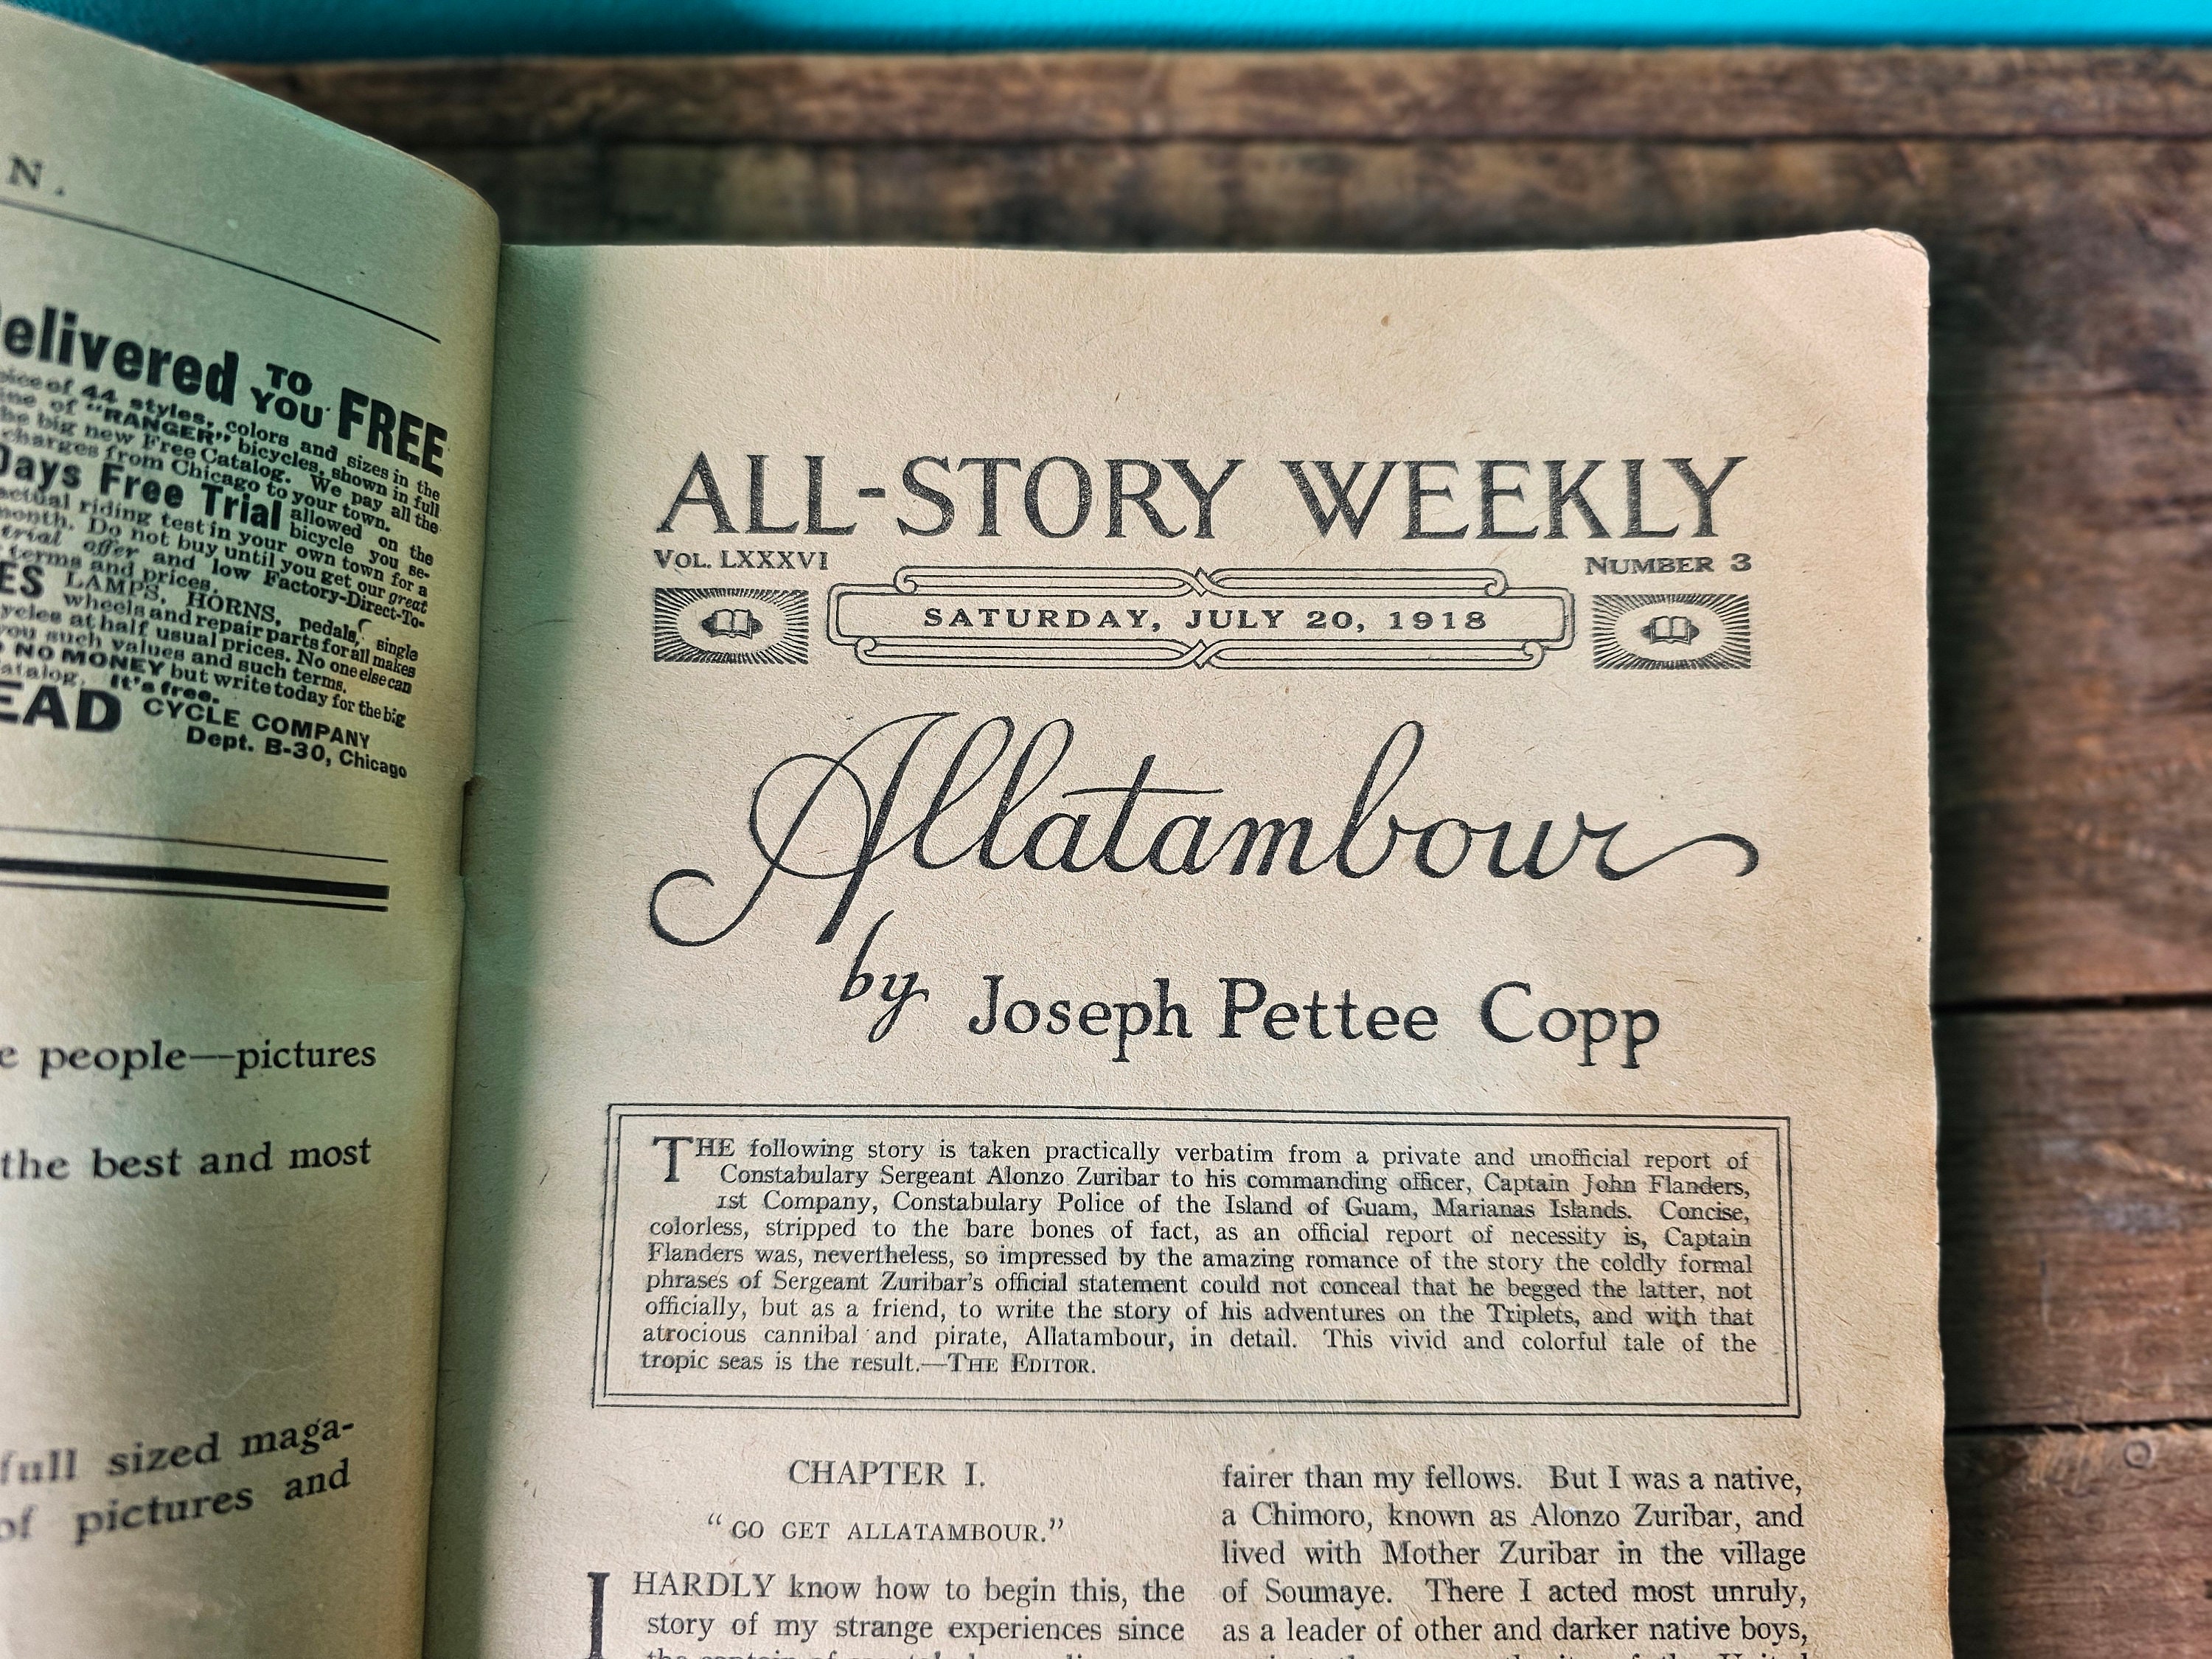 N.
elivered TO YOU FREE
of 44 styles, colors and sizes in the
of "RANGER" bicycles, shown in full
the big new Free Catalog. We pay all the
charges from Chicago to your town.
Days Free Trial allowed on the
bicycle you se-
actual riding test in your own town for a
month. Do not buy until you get our great
trial offer and low Factory-Direct-To-
terms and prices.
ES LAMPS, HORNS, pedals, single
wheels and repair parts for all makes
at half usual prices. No one else can
you such values and such terms.
NO MONEY but write today for the big
It's free.
EAD CYCLE COMPANY
Dept. B-30, Chicago
people—pictures
the best and most
full sized maga-
of pictures and
ALL-STORY WEEKLY
VOL. LXXXVI NUMBER 3
SATURDAY, JULY 20, 1918
Allatambour
by Joseph Pettee Copp
THE following story is taken practically verbatim from a private and unofficial report of
Constabulary Sergeant Alonzo Zuribar to his commanding officer, Captain John Flanders,
1st Company, Constabulary Police of the Island of Guam, Marianas Islands. Concise,
colorless, stripped to the bare bones of fact, as an official report of necessity is, Captain
Flanders was, nevertheless, so impressed by the amazing romance of the story the coldly formal
phrases of Sergeant Zuribar's official statement could not conceal that he begged the latter, not
officially, but as a friend, to write the story of his adventures on the Triplets, and with that
atrocious cannibal and pirate, Allatambour, in detail. This vivid and colorful tale of the
tropic seas is the result.—THE EDITOR.
CHAPTER I.
"GO GET ALLATAMBOUR."
I HARDLY know how to begin this, the
story of my strange experiences since
fairer than my fellows. But I was a native,
a Chimoro, known as Alonzo Zuribar, and
lived with Mother Zuribar in the village
of Soumaye. There I acted most unruly,
as a leader of other and darker native boys,